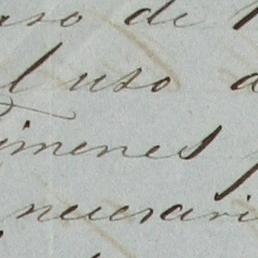 aso de
el uso
imenes
necesari